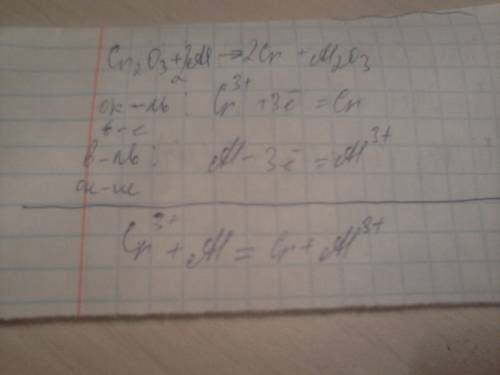 Cr₂O₃ + 2Al → 2Cr + Al₂O₃
ок-ль : Cr³⁺ + 3ē = Cr
в-е
в-ль : Al - 3ē = Al³⁺
ок-ие
Cr³⁺ + Al = Cr + Al³⁺